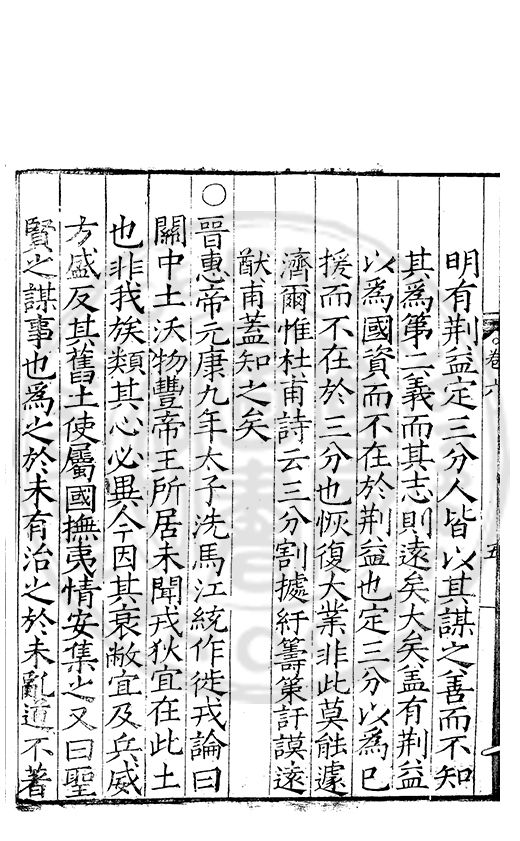 明有荆益定三分人皆以其謀之善而不知
其爲第二義而其志則遠矣大矣盖有荆益
以爲國資而不在於荆益也定三分以爲已
援而不在於三分也恢復大業非此莫能遽
濟爾惟杜甫詩云三分割據紆籌策訏謨遠
猷甫蓋知之矣
○晉惠帝元康九年太子洗馬江統作徙戎論曰
關中土沃物豐帝王所居未聞戎狄宜在此土
也非我族類其心必異今因其衰敝宜及兵威
方盛反其舊土使屬國撫夷情安集之又曰聖
賢之謀事也爲之於未有治之於未亂道不著
卷六
五